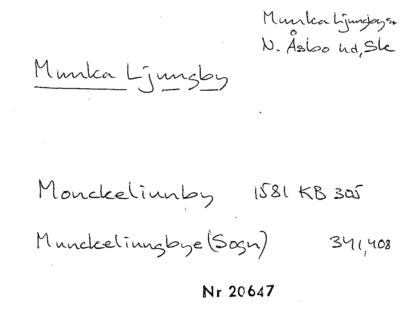 Munka Ljungby sn
N. Åsbo hd, Sk
Munka Ljungby
Monckeliunby 1581 KB 305
Munckeliungbye (Sogn) 341, 408
Nr 20647